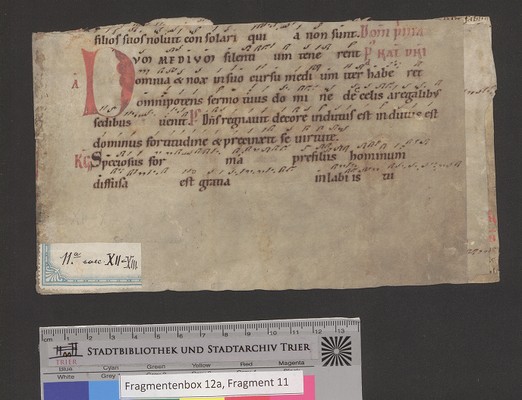 filios suos noluit con solari qui a non sunt. Dom p̄ma
DVM MEDIVM silenti um tene rent
omnia & nox in suo cursu medi um iter habe ret
omnipotens sermo tuus do mi ne de celis a regalibus
sedibus venit Dn̄s regnavit decore indutus est indutus est
dominus fortitudine & precinxit se virtute.
Speciosus for ma prefiliis hominum
diffusa est gratia in labi is tu
11.a saec. XII-XIII
cm 1 2 3 4 5 6 7 8 9 10 11 12 13
TRIER STADTBIBLIOTHEK UND STADTARCHIV TRIER
Blue Cyan Green Yellow Red Magenta
White Grey
Fragmentenbox 12a, Fragment 11